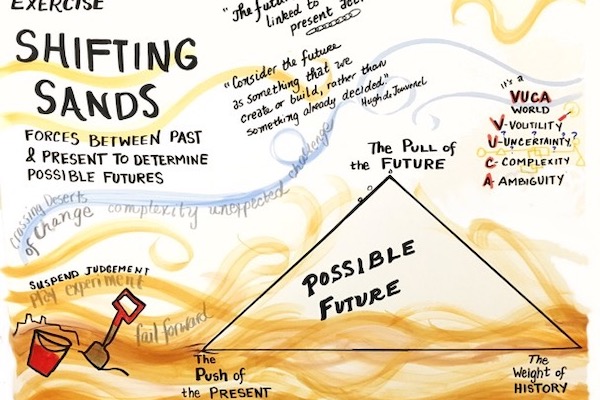 EXERCISE
SHIFTING
SANDS
FORCES BETWEEN PAST
& PRESENT TO DETERMINE
POSSIBLE FUTURES
"The futu
linked to
present act
"Consider the future
as something that we
create or build, rather than
something already decided."
Hugh de Jouvenel
it's a
VUCA
WORLD
V-VOLITILITY
U-UNCERTAINTY??
C-COMPLEXITY
A AMBIGUITY
Crossing Deserts
of Change complexity unexpected challenge
SUSPEND JUDGEMENT
Play experiment
fail forward
The Pull of
the FUTURE
POSSIBLE
FUTURE
The
Push of
the PRESENT
The
Weight of
HISTORY